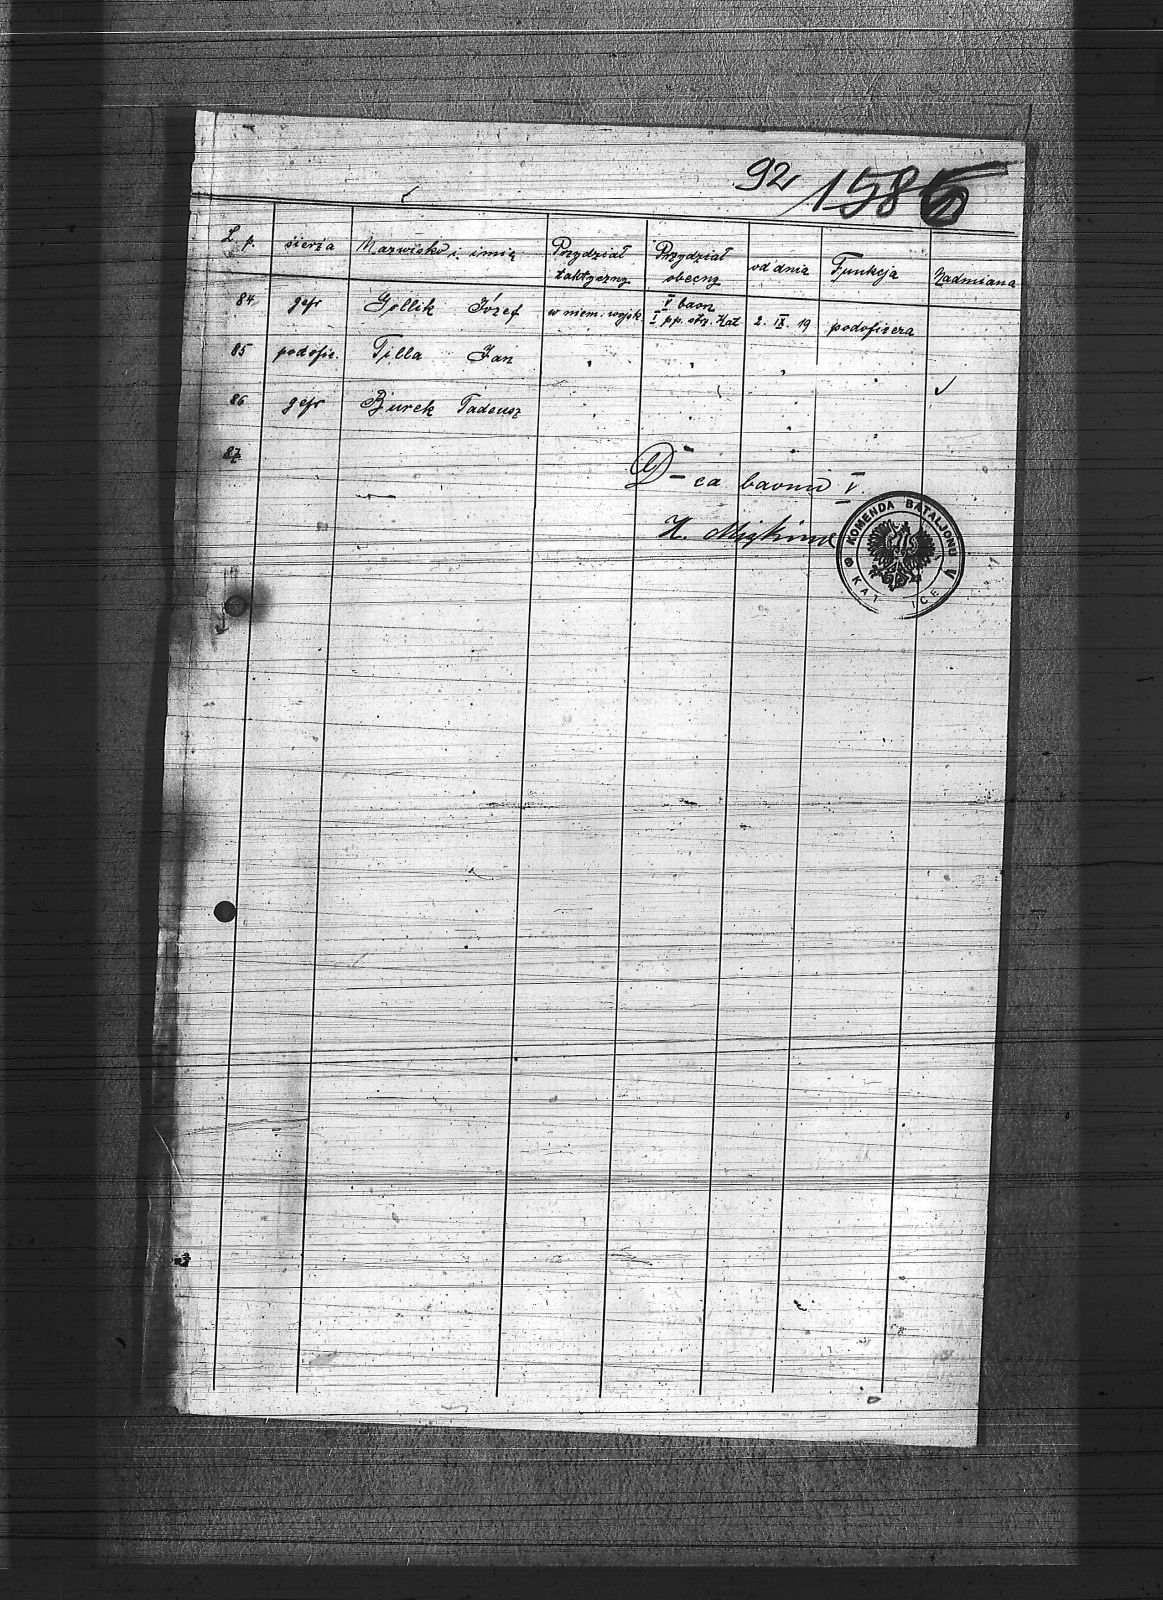 92 158
L. p. sierża Nazwisko i imię Przydział taktyczny Przydział obecny od dnia Funkcja Nadmiana
84. gefr Jollik Józef w niem. wojsk V baon I pp. strz. Kat 2. IX. 19 podoficera
85 podofic. Tilla Jan " " " "
86 gefr Burek Tadeusz " " " "
87
D-ca baonu V.
KOMENDA BATALJONU V
KAT ICE